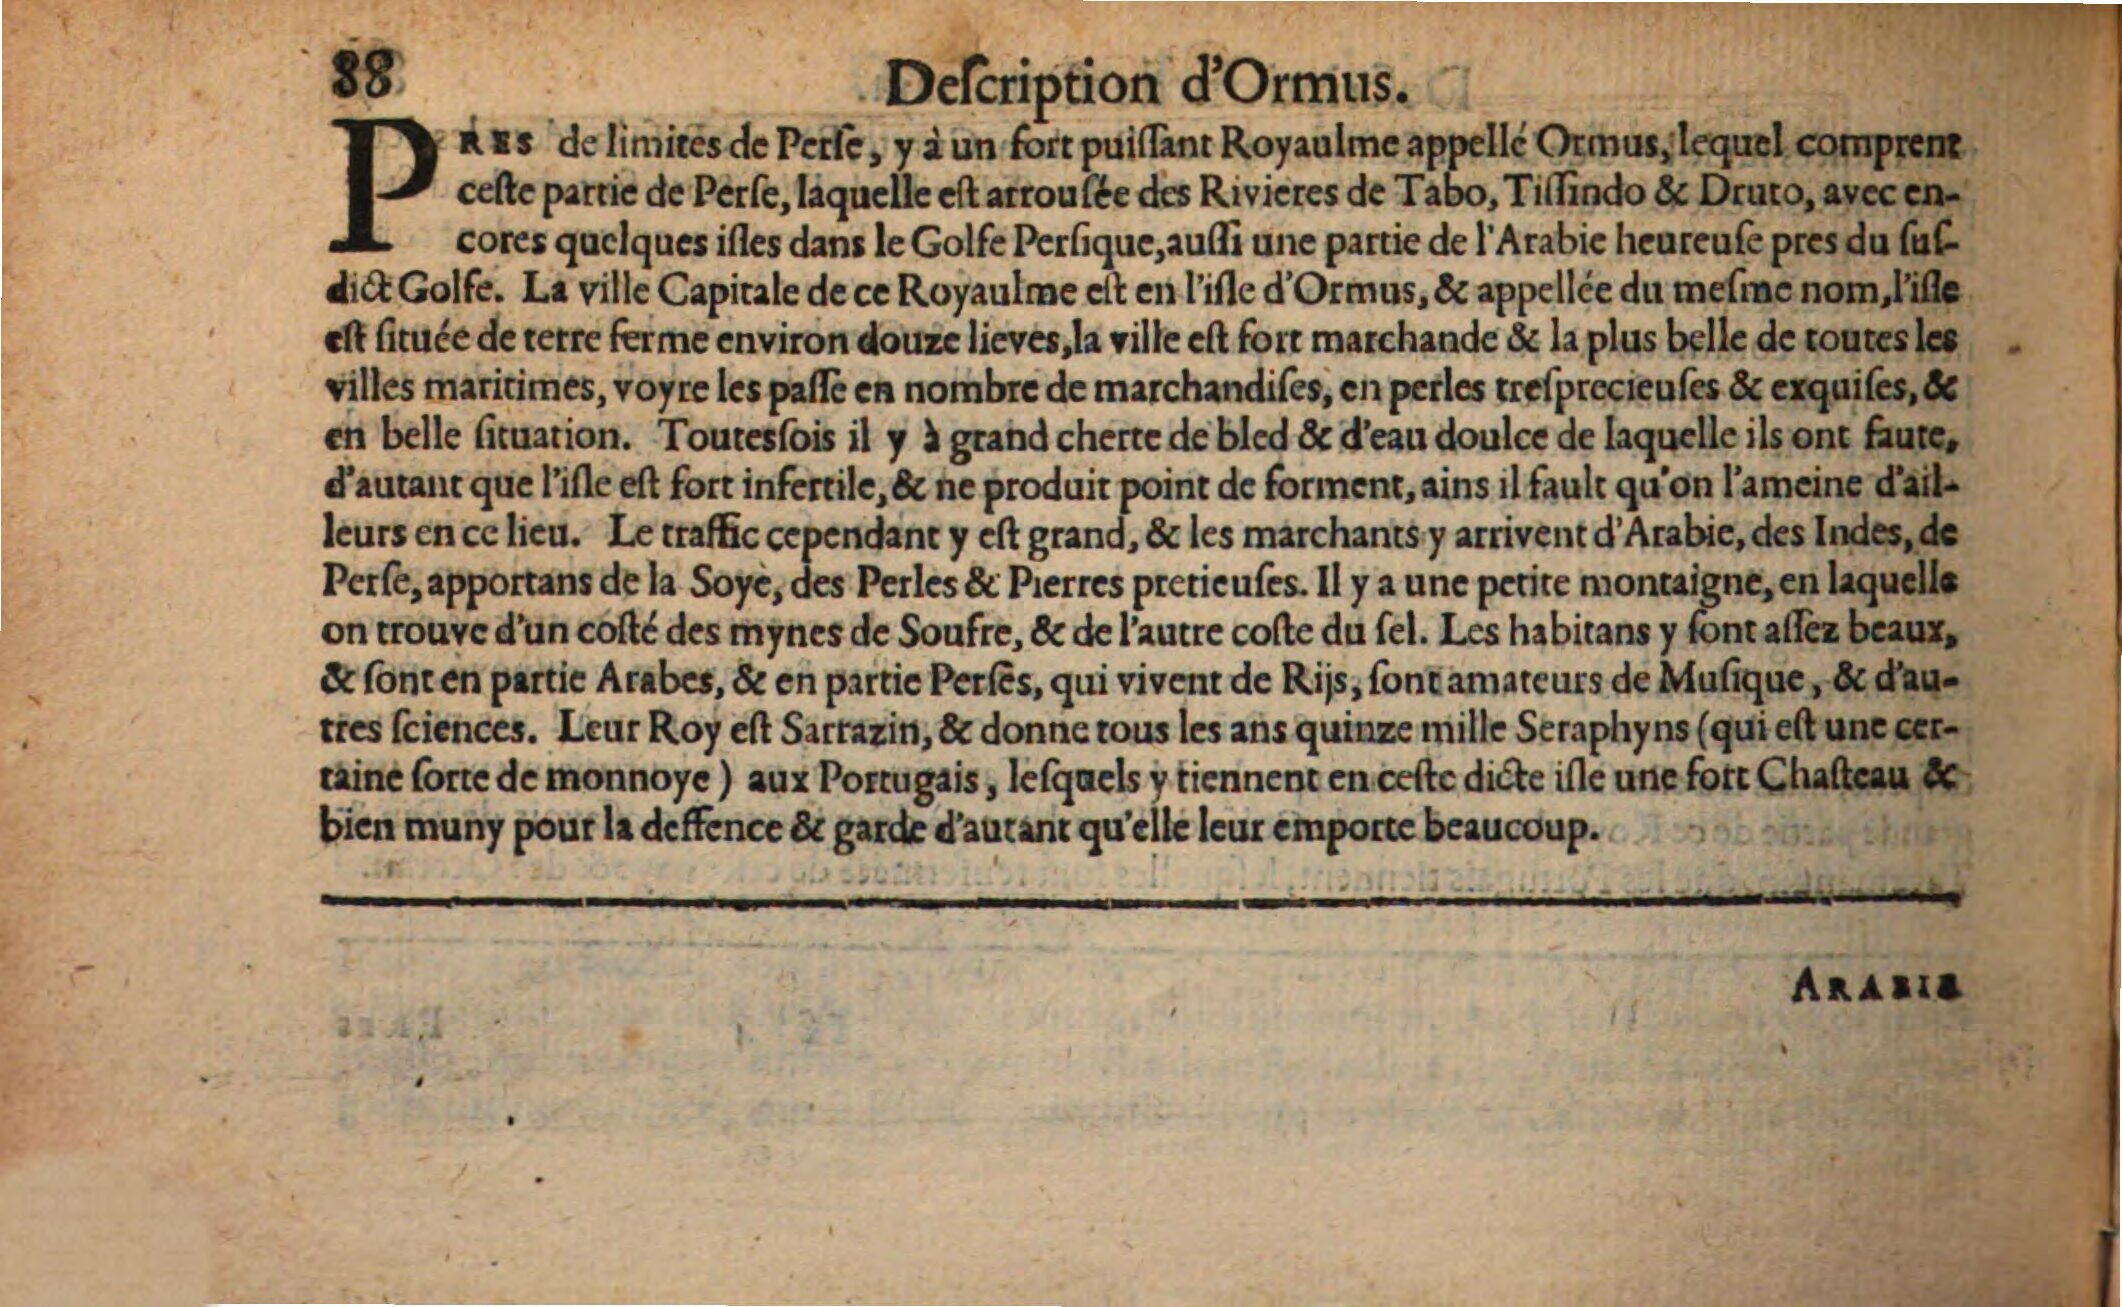 88
Deſcription d'Ormus.
PRES de limites de Perſe, y à un fort puiſſant Royaulme appellé Ormus, lequel comprent
ceſte partie de Perſe, laquelle eſt arrouſée des Rivieres de Tabo, Tiſſindo & Druto, avec en-
cores quelques iſles dans le Golfe Perſique, auſſi une partie de l'Arabie heureuſe pres du ſuſ-
dict Golfe. La ville Capitale de ce Royaulme eſt en l'iſle d'Ormus, & appellée du meſme nom, l'iſle
eſt ſituée de terre ferme environ douze lieves, la ville eſt fort marchande & la plus belle de toutes les
villes maritimes, voyre les paſſe en nombre de marchandiſes, en perles treſprecieuſes & exquiſes, &
en belle ſituation. Toutesſois il y à grand cherte de bled & d'eau doulce de laquelle ils ont faute,
d'autant que l'iſle eſt fort infertile, & ne produit point de forment, ains il fault qu'on l'ameine d'ail-
leurs en ce lieu. Le traffic cependant y eſt grand, & les marchants y arrivent d'Arabie, des Indes, de
Perſe, apportans de la Soye, des Perles & Pierres pretieuſes. Il y a une petite montaigne, en laquelle
on trouve d'un coſté des mynes de Soufre, & de l'autre coſte du ſel. Les habitans y ſont aſſez beaux,
& ſont en partie Arabes, & en partie Perſes, qui vivent de Rijs, ſont amateurs de Muſique, & d'au-
tres ſciences. Leur Roy eſt Sarrazin, & donne tous les ans quinze mille Seraphyns (qui eſt une cer-
taine ſorte de monnoye) aux Portugais, leſquels y tiennent en ceſte dicte iſle une fort Chaſteau &
bien muny pour la deffence & garde d'autant qu'elle leur emporte beaucoup.
ARABIE